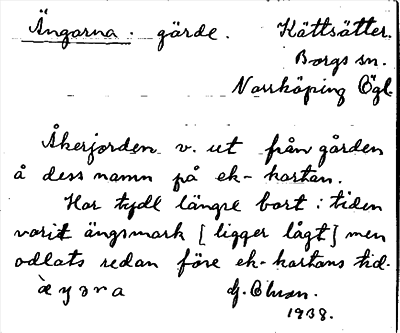 Ängarna. gärde. Kättsätter.
Borgs sn.
Norrköping Ögl.
Åkerjorden v. ut från gården
å dess namn på ek-kartan.
Har tydl längre bort i tiden
varit ängsmark [ligger lågt] men
odlats redan före ek-kartans tid.
1938.